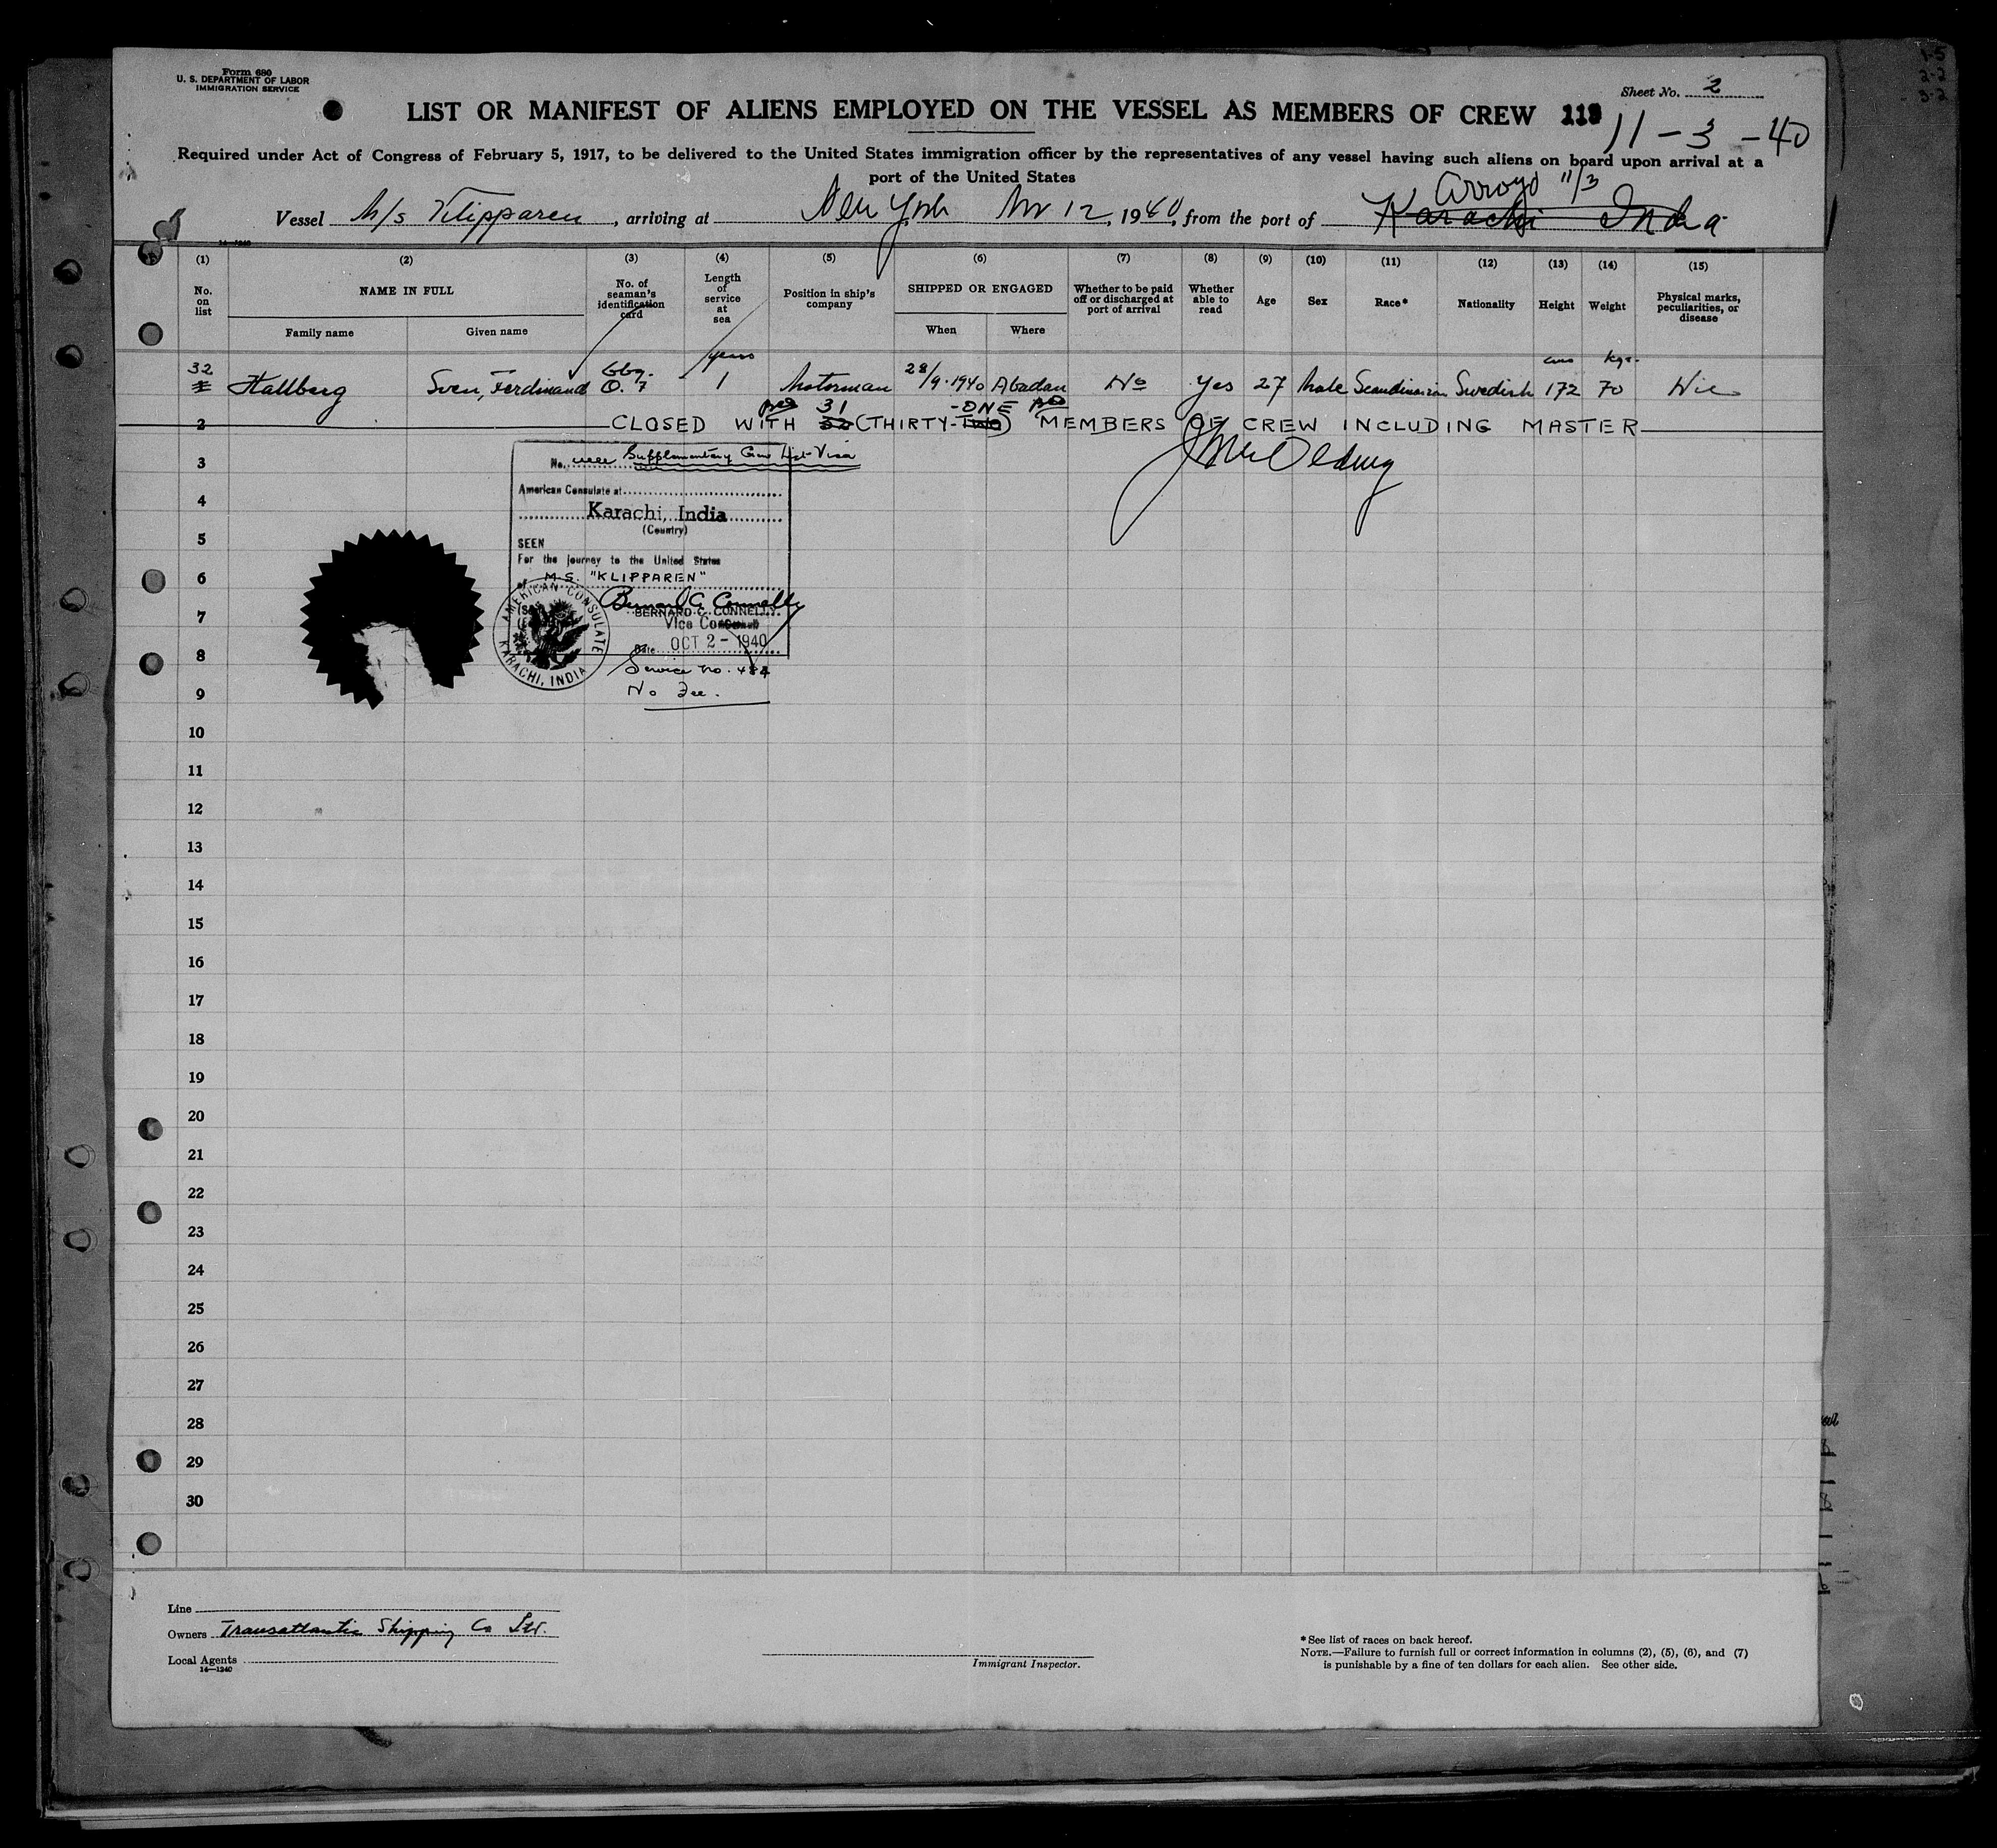 Form 680
U. S. DEPARTMENT OF LABOR
IMMIGRATION SERVICE
Sheet No. 2
LIST OR MANIFEST OF ALIENS EMPLOYED ON THE VESSEL AS MEMBERS OF CREW
11-3-40
Required under Act of Congress of February 5, 1917, to be delivered to the United States immigration officer by the representatives of any vessel having such aliens on board upon arrival at a
port of the United States
Arroyo 11/3
Vessel M/s Klipparen, arriving at New York Nov 12, 1940, from the port of Karachi India
14—1240
(1) (2) (3) (4) (5) (6) (7) (8) (9) (10) (11) (12) (13) (14) (15)
No. on list
NAME IN FULL
Family name Given name
No. of seaman's identification card
Length of service at sea
Position in ship's company
SHIPPED OR ENGAGED
When Where
Whether to be paid off or discharged at port of arrival
Whether able to read
Age
Sex
Race*
Nationality
Height
Weight
Physical marks, peculiarities, or disease
years cms kgs.
32 Hallberg Sven, Ferdinand Gbg. O. 7 1 Motorman 28/9-1940 Abadan No Yes 27 Male Scandinavian Swedish 172 70 Nil
31 -ONE
2 CLOSED WITH 32 (THIRTY-TWO) MEMBERS OF CREW INCLUDING MASTER
3
No. Supplementary Crew List Visa
4
American Consulate at
Karachi, India
(Country)
5
SEEN
For the journey to the United States
6
of M.S. "KLIPPAREN"
Bernard C Connelly
7
BERNARD C. CONNELLY
Vice Consul
Date OCT 2 - 1940
AMERICAN CONSULATE
KARACHI, INDIA
8
Service No. 484
9
No Fee.
10
11
12
13
14
15
16
17
18
19
20
21
22
23
24
25
26
27
28
29
30
Line
Owners Transatlantic Shipping Co Ltd.
Local Agents
14—1240
Immigrant Inspector.
*See list of races on back hereof.
NOTE.—Failure to furnish full or correct information in columns (2), (5), (6), and (7)
is punishable by a fine of ten dollars for each alien. See other side.
1-5
2-2
3-2